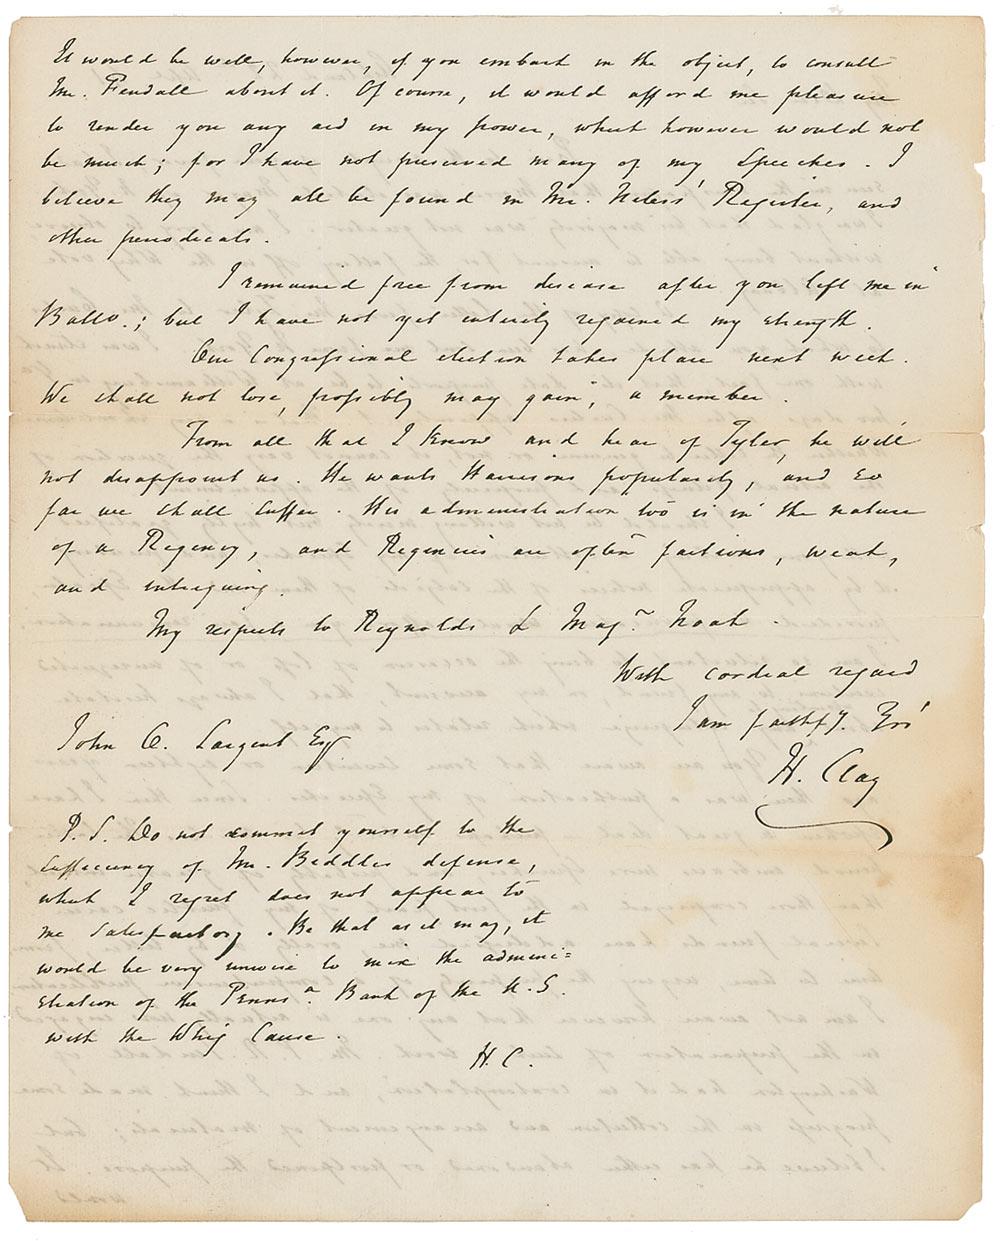 It would be well, however, if you embark in the object, to consult
Mr. Fendall about it. Of course, it would afford me pleasure
to render you any aid in my power, which however would not
be much; for I have not preserved many of my Speeches. I
believe they may all be found in Mr. Niles's Register, and
other periodicals.
I remained free from disease after you left me in
Balto.; but I have not yet entirely regained my strength.
Our Congressional election takes place next week.
We shall not lose, possibly may gain, a member.
From all that I know and hear of Tyler, he will
not disappoint us. He wants Harrisons popularity, and so
far we shall suffer. His administration too is in the nature
of a Regency, and Regencies are often factious, weak,
and intriguing.
My respects to Reynolds & Maj. Noah.
With cordial regard
I am faithfy. Yrs
John O. Sargent Esq
H. Clay
P.S. Do not commit yourself to the
sufficiency of Mr. Biddles defense,
which I regret does not appear to
me satisfactory. Be that as it may, it
would be very unwise to mix the admini=
stration of the Penna. Bank of the U.S.
with the Whig Cause.
H.C.